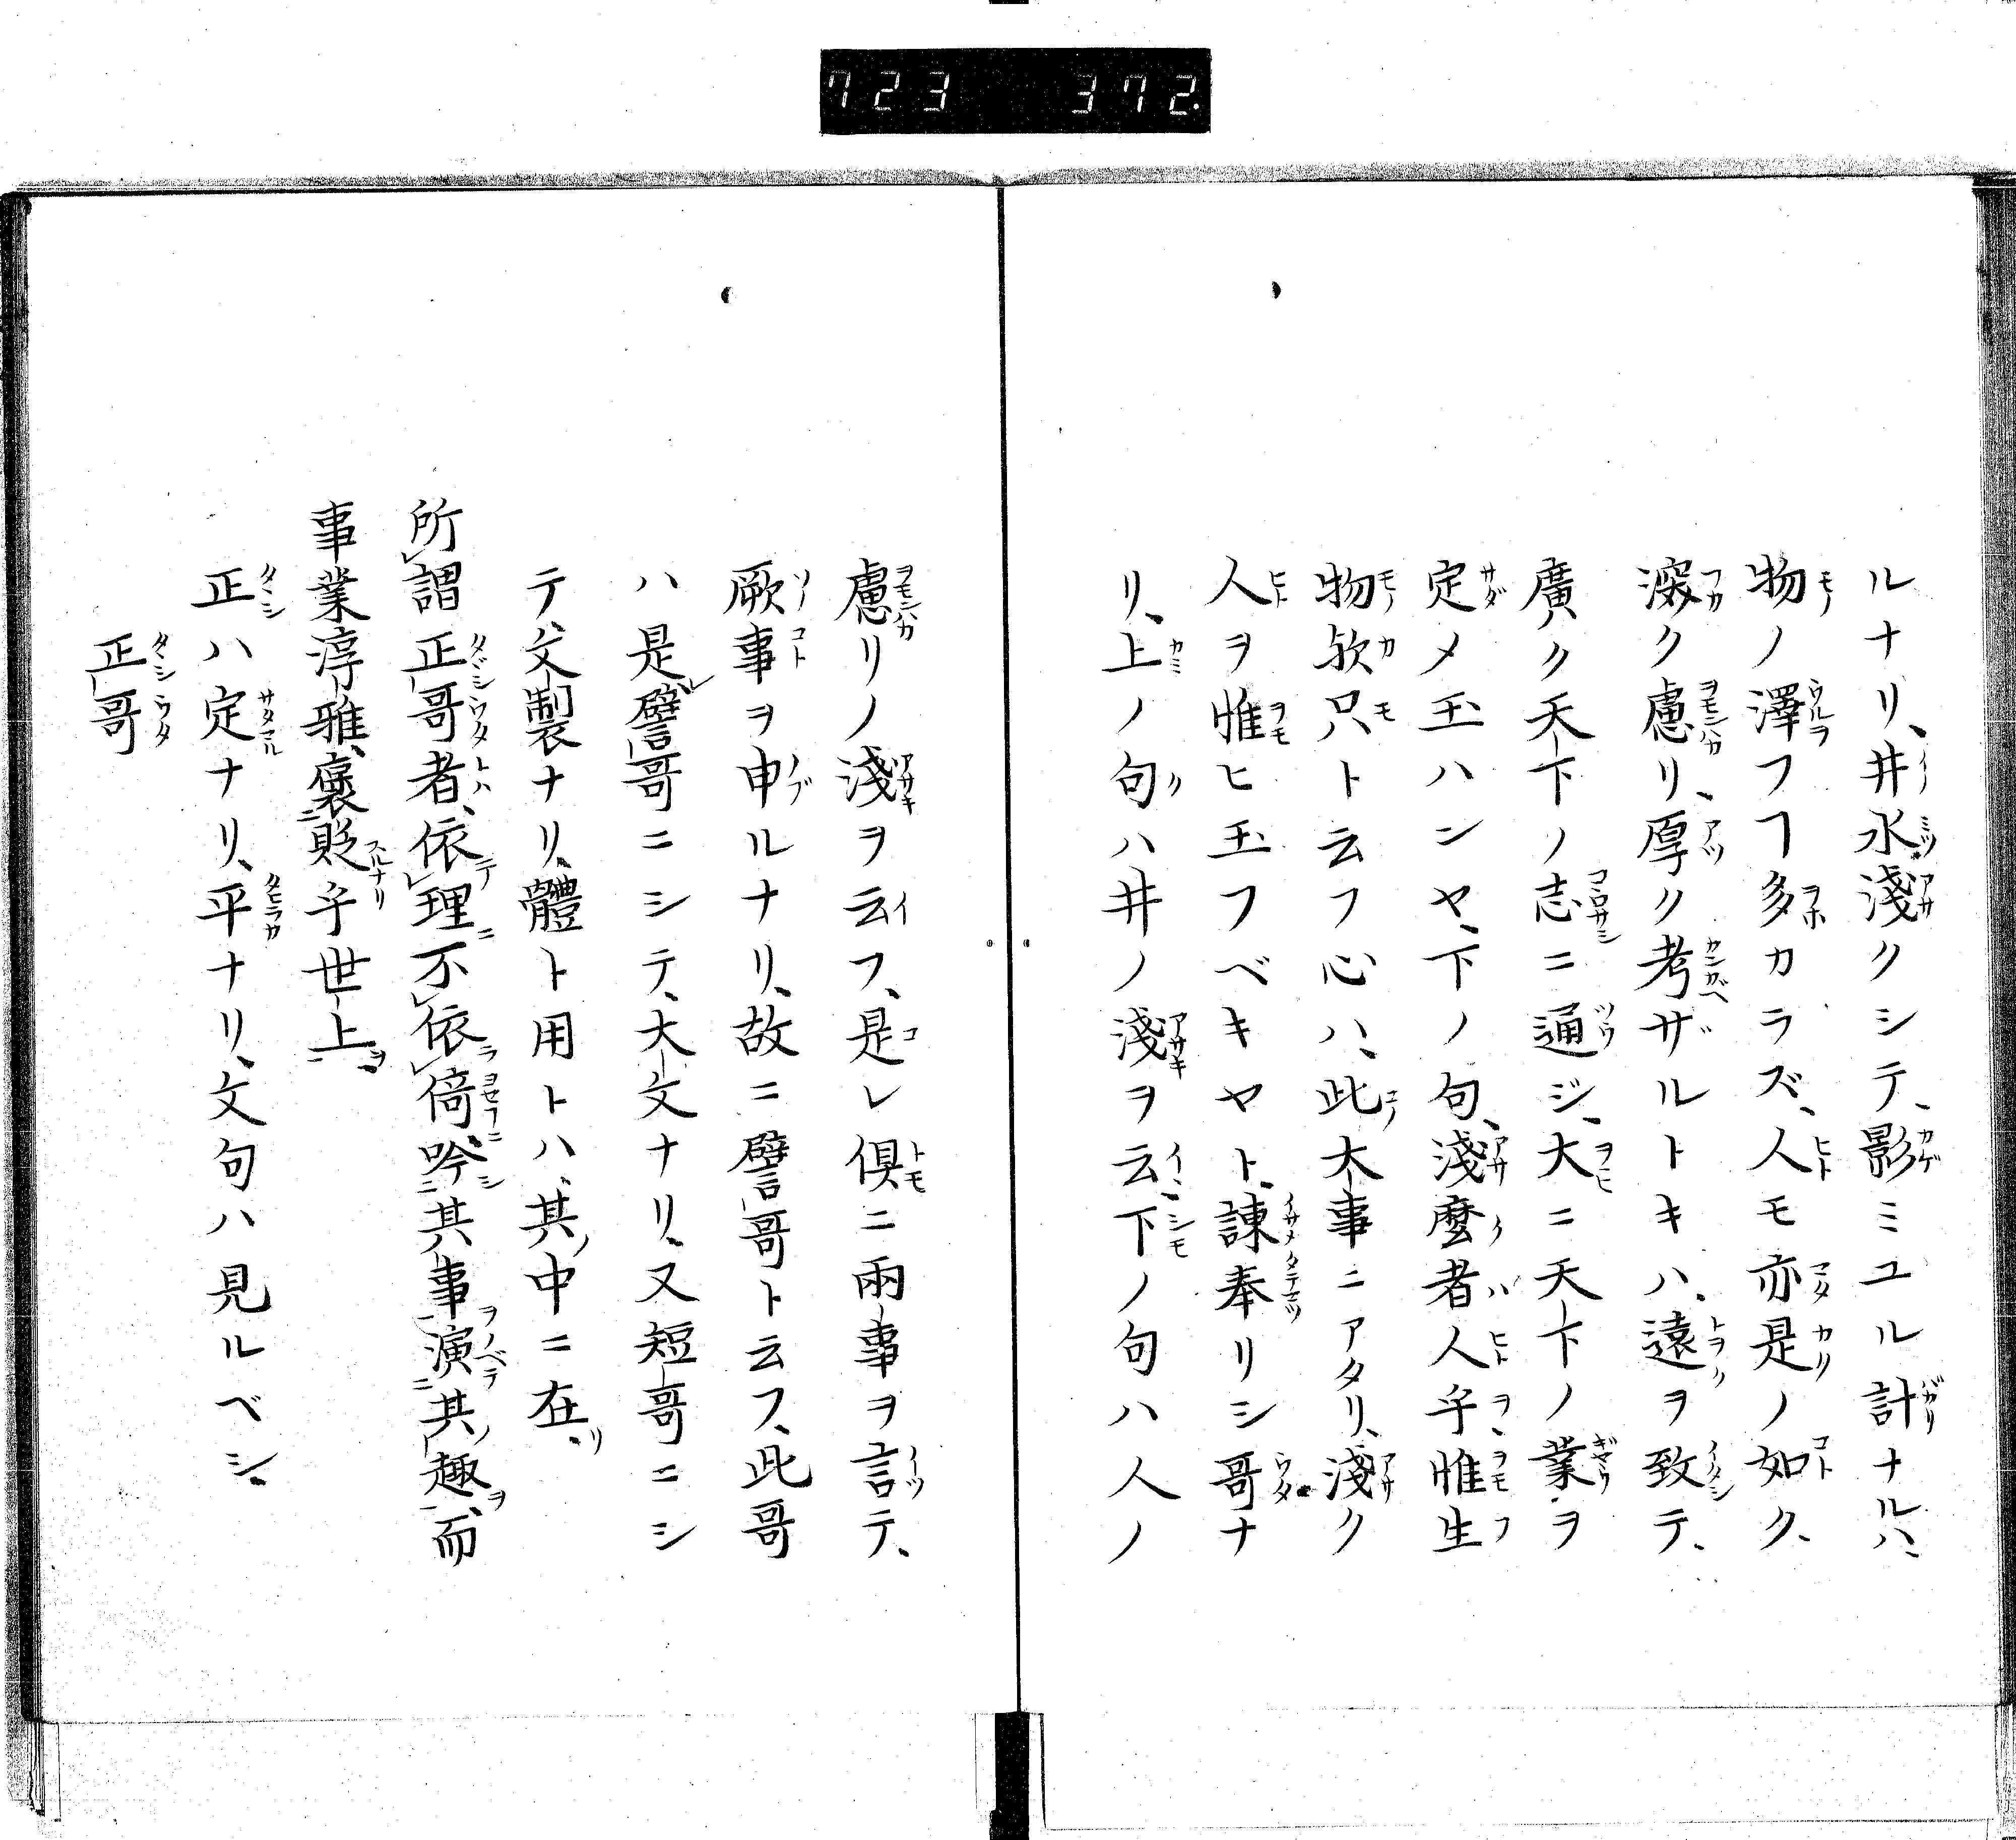 723 372.
ルナリ、井水淺クシテ、影ミユル計ナルハ、
物ノ澤フヿ多カラズ、人モ亦是ノ如ク、
深ク慮リ、厚ク考ザルトキハ、遠ヲ致テ、
廣ク天下ノ志ニ通ジ、大ニ天下ノ業ヲ
定メ玉ハンヤ、下ノ句、淺麼者人乎惟生
物欤只ト云フ心ハ、此大事ニアタリ、淺ク
人ヲ惟ヒ玉フベキヤト、諌奉リシ哥ナ
リ、上ノ句ハ井ノ淺ヲ云、下ノ句ハ人ノ
慮リノ淺ヲ云フ、是レ倶ニ兩事ヲ言テ、
厥事ヲ申ルナリ、故ニ譬哥ト云フ、此哥
ハ是譬哥ニシテ、大文ナリ、又短哥ニシ
テ、父製ナリ、體ト用トハ、其中ニ在
所謂正哥者、依理不依倚、吟其事演其趣、而
事業淳雅、褒貶乎世上
正ハ定ナリ、平ナリ、文句ハ見ルベシ、
正哥